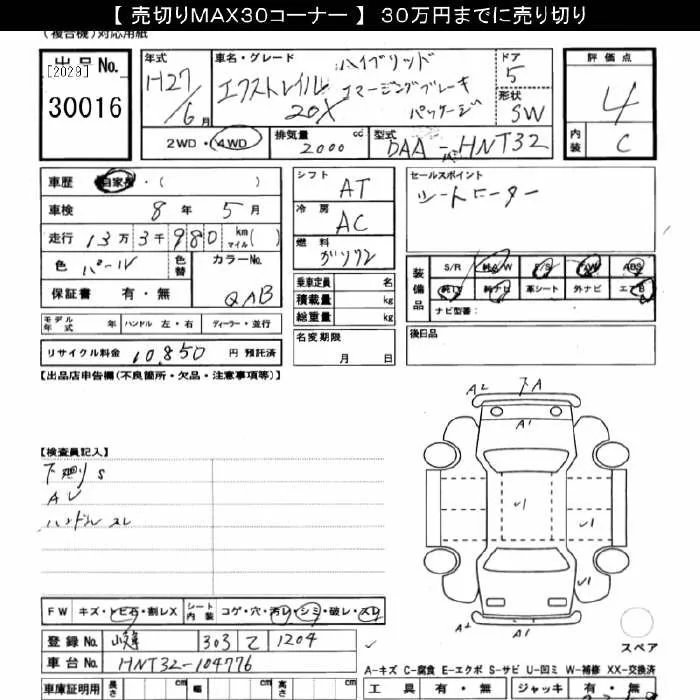 【 売切りMAX30コーナー 】 30万円までに売り切り
(複合機)対応用紙
出品No. [2029] 30016
年式 H27/6月
車名・グレード エクストレイル ハイブリッド
20X エマージングブレーキ
パッケージ
ドア 5
形状 SW
評価点 4
内装 C
2WD・4WD 排気量 2000 cc 型式 DAA-HNT32
車歴 自家用・( )
車検 8年 5月
走行 13万3千980 km マイル( )
色 パール 色替 カラーNo. QAB
保証書 有・無
シフト AT
冷房 AC
燃料 ガソリン
乗車定員 名
積載量 kg
総重量 kg
セールスポイント
シートヒーター
装備品 S/R 純A/W P/S P/W ABS
純TV 純ナビ 革シート 外ナビ エアB
ナビ型番:
モデル年式 年 ハンドル 左・右 ディーラー・並行
リサイクル料金 10,850 円 預託済
名変期限 月 日
後日品
【出品店申告欄(不良箇所・欠品・注意事項等)】
A2 下A
A1
【検査員記入】
下廻りS
ハンドルスレ
FW キズ・トビ石・割レX シート内装 コゲ・穴・汚レ・シミ・破レ・スレ
A2 A1
登録No. 303 て 1204
車台No. HNT32-104776
スペア
A-キズ C-腐食 E-エクボ S-サビ U-凹ミ W-補修 XX-交換済
車庫証明用 長さ cm 幅 cm 高さ cm
工具 有・無 ジャッキ 有・無